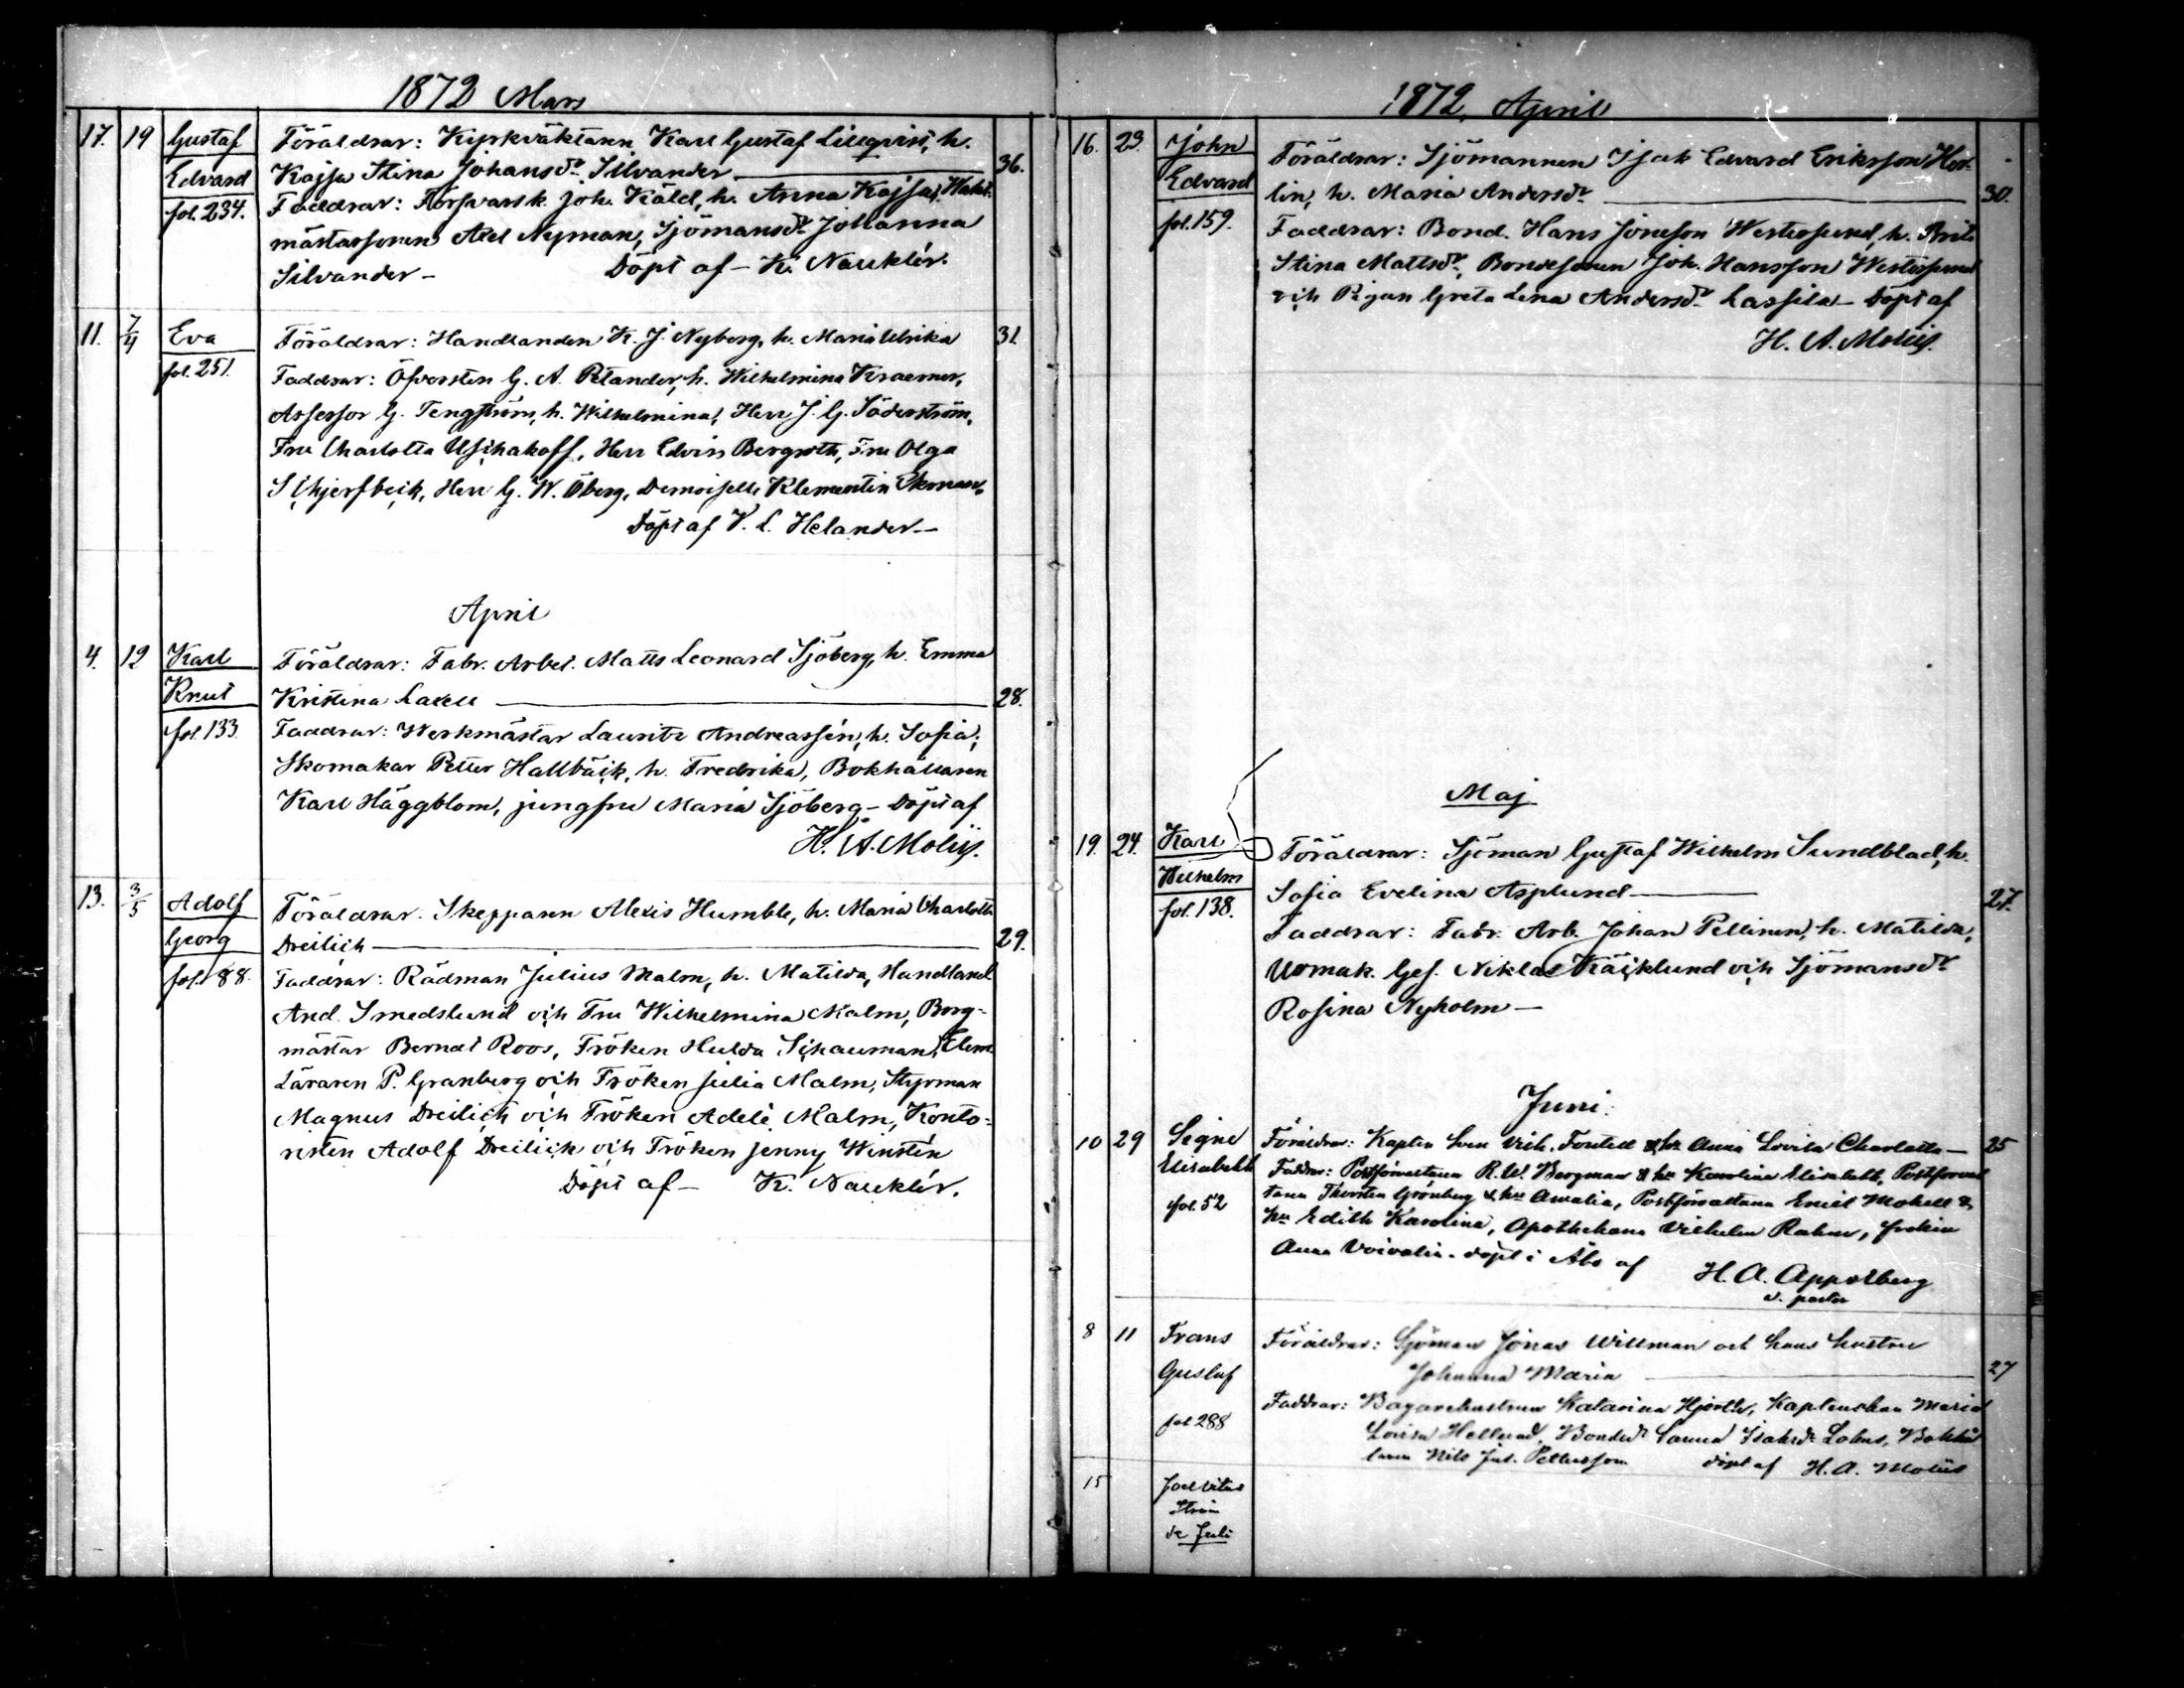 1872 Mars
17. 19 Gustaf Edvard fol. 234.
Föräldrar: Kyrkväktaren Karl Gustaf Lillqvist, h.
Kajsa Stina Johansdr Silvander 36.
Faddrar: Försvarsk. Joh. Käld, h. Anna Kajsa, Wakt-
mästarsonen Axel Nyman, Sjömansdr Johanna
Silvander – Döpt af – K. Nauklér.
11. 7/4 Eva fol. 251.
Föräldrar: Handlanden K. J. Nyberg, h. Maria Ulrika 31
Faddrar: Öfversten G. A. Petander, h. Wilhelmina Kraemer,
Assessor G. Tengström, h. Wilhelmina, Herr J. G. Söderström,
Fru Charlotta Uschakoff, Herr Edvin Bergroth, Fru Olga
Schjerfbeck, Herr G. W. Öberg, Demoiselle Klementin Ekman.
Döpt af V. L. Helander –
April
4. 12 Karl Knut fol. 133.
Föräldrar: Fabr. Arbet. Matts Leonard Sjöberg, h. Emma
Kristina Laxell 28.
Faddrar: Werkmästar Lauritz Andreassén, h. Sofia,
Skomakar Petter Hallbäck, h. Fredrika, Bokhållaren
Karl Häggblom, jungfru Maria Sjöberg – Döpt af
H. A. Moliis.
13. 3/5 Adolf Georg fol. 88.
Föräldrar. Skepparen Alexis Humble, h. Maria Charlotta
Dreilick 29.
Faddrar: Rådman Julius Malm, h. Matilda, Handland.
And. Smedslund och Fru Wilhelmina Malm, Borg-
mästar Berndt Roos, Fröken Hulda Schauman, Elem.
Läraren P. Granberg och Fröken Julia Malm, Styrman
Magnus Dreilick och Fröken Adele Malm, Konto-
risten Adolf Dreilick och Fröken Jenny Winstén
Döpt af – K. Nauklér.
1872. April
16. 23. John Edvard fol. 159.
Föräldrar: Sjömannen Isak Edvard Eriksson Her-
lin, h. Maria Andersdr 30.
Faddrar: Bond. Hans Jönsson Westersund, h. Brita
Stina Mattsdr, Bondesonen Joh. Hansson Westersund
och Pigan Greta Lena Andersdr Lassila – Döpt af
H. A. Moliis.
Maj
19. 24. Karl Wilhelm fol. 138.
Föräldrar: Sjöman Gustaf Wilhelm Sundblad, h.
Sofia Evelina Asplund 27.
Faddrar: Fabr. Arb. Johan Pellinen, h. Matilda,
Urmak. Ges. Niklas Käcklund och Sjömansdr
Rosina Nyholm –
Juni.
10 29 Signe Elisabeth fol. 52
Föräldrar: Kapten Sven Vilh. Fontell & hu Anna Lovisa Charlotta – 25
Faddrar: Postförvaltaren R. W. Bergman & hu Karolina Elisabeth, Postförval-
taren Thorsten Grönberg & hu Amalia, Postförvaltaren Emil Mokell &
hu Edith Karolina, Apothekaren Vilhelm Rahm, fröken
Anna Voivalin. döpt i Åbo af H. A. Appelberg
v. pastor
8 11 Frans Gustaf fol. 288
Föräldrar: Sjöman Jonas Willman och hans hustru
Johanna Maria 27
Faddrar: Bagarehustrun Katarina Hjorth, Kaptenskan Maria
Lovisa Hellund, Bondedr Sanna Isaksdr Lokus, Bokhål-
laren Nils Jul. Pettersson döpt af H. A. Moliis
15 Joel Vitus
Ström
se Juli